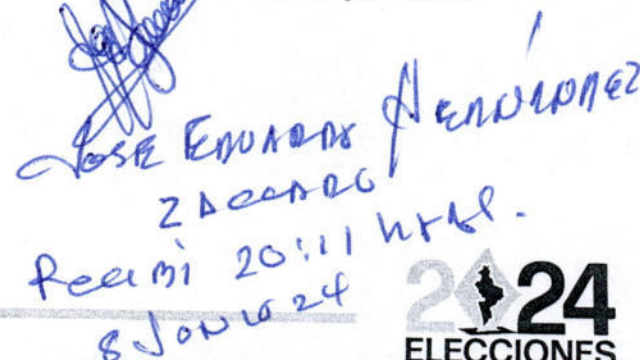 JOSE EDUARDO HERNÁNDEZ
ZACCARO
Recibí 20:11 hrs.
8 JUNIO 24
2024
ELECCIONES